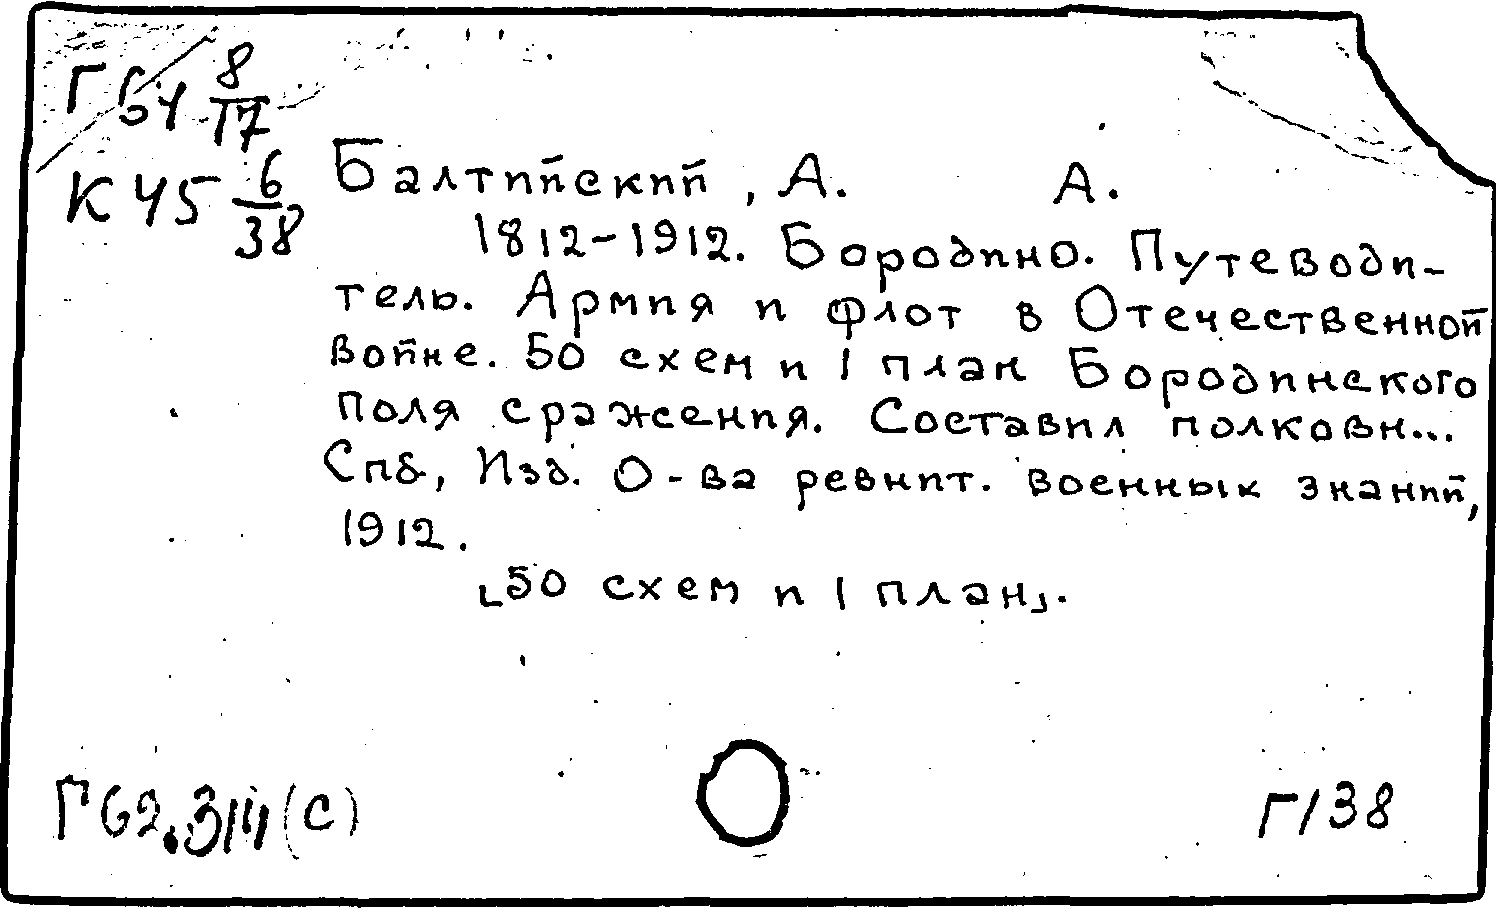 Г 64 8/17
К 45 6/38
Балтийский, А. А.
1812-1912. Бородино. Путеводи-
тель. Армия и флот в Отечественной
войне. 50 схем и 1 план Бородинского
поля сражения. Составил полковн...
Спб, Изд. О-ва ревнит. военных знаний,
1912.
⌊50 схем и 1 план⌋.
(С)
Г138